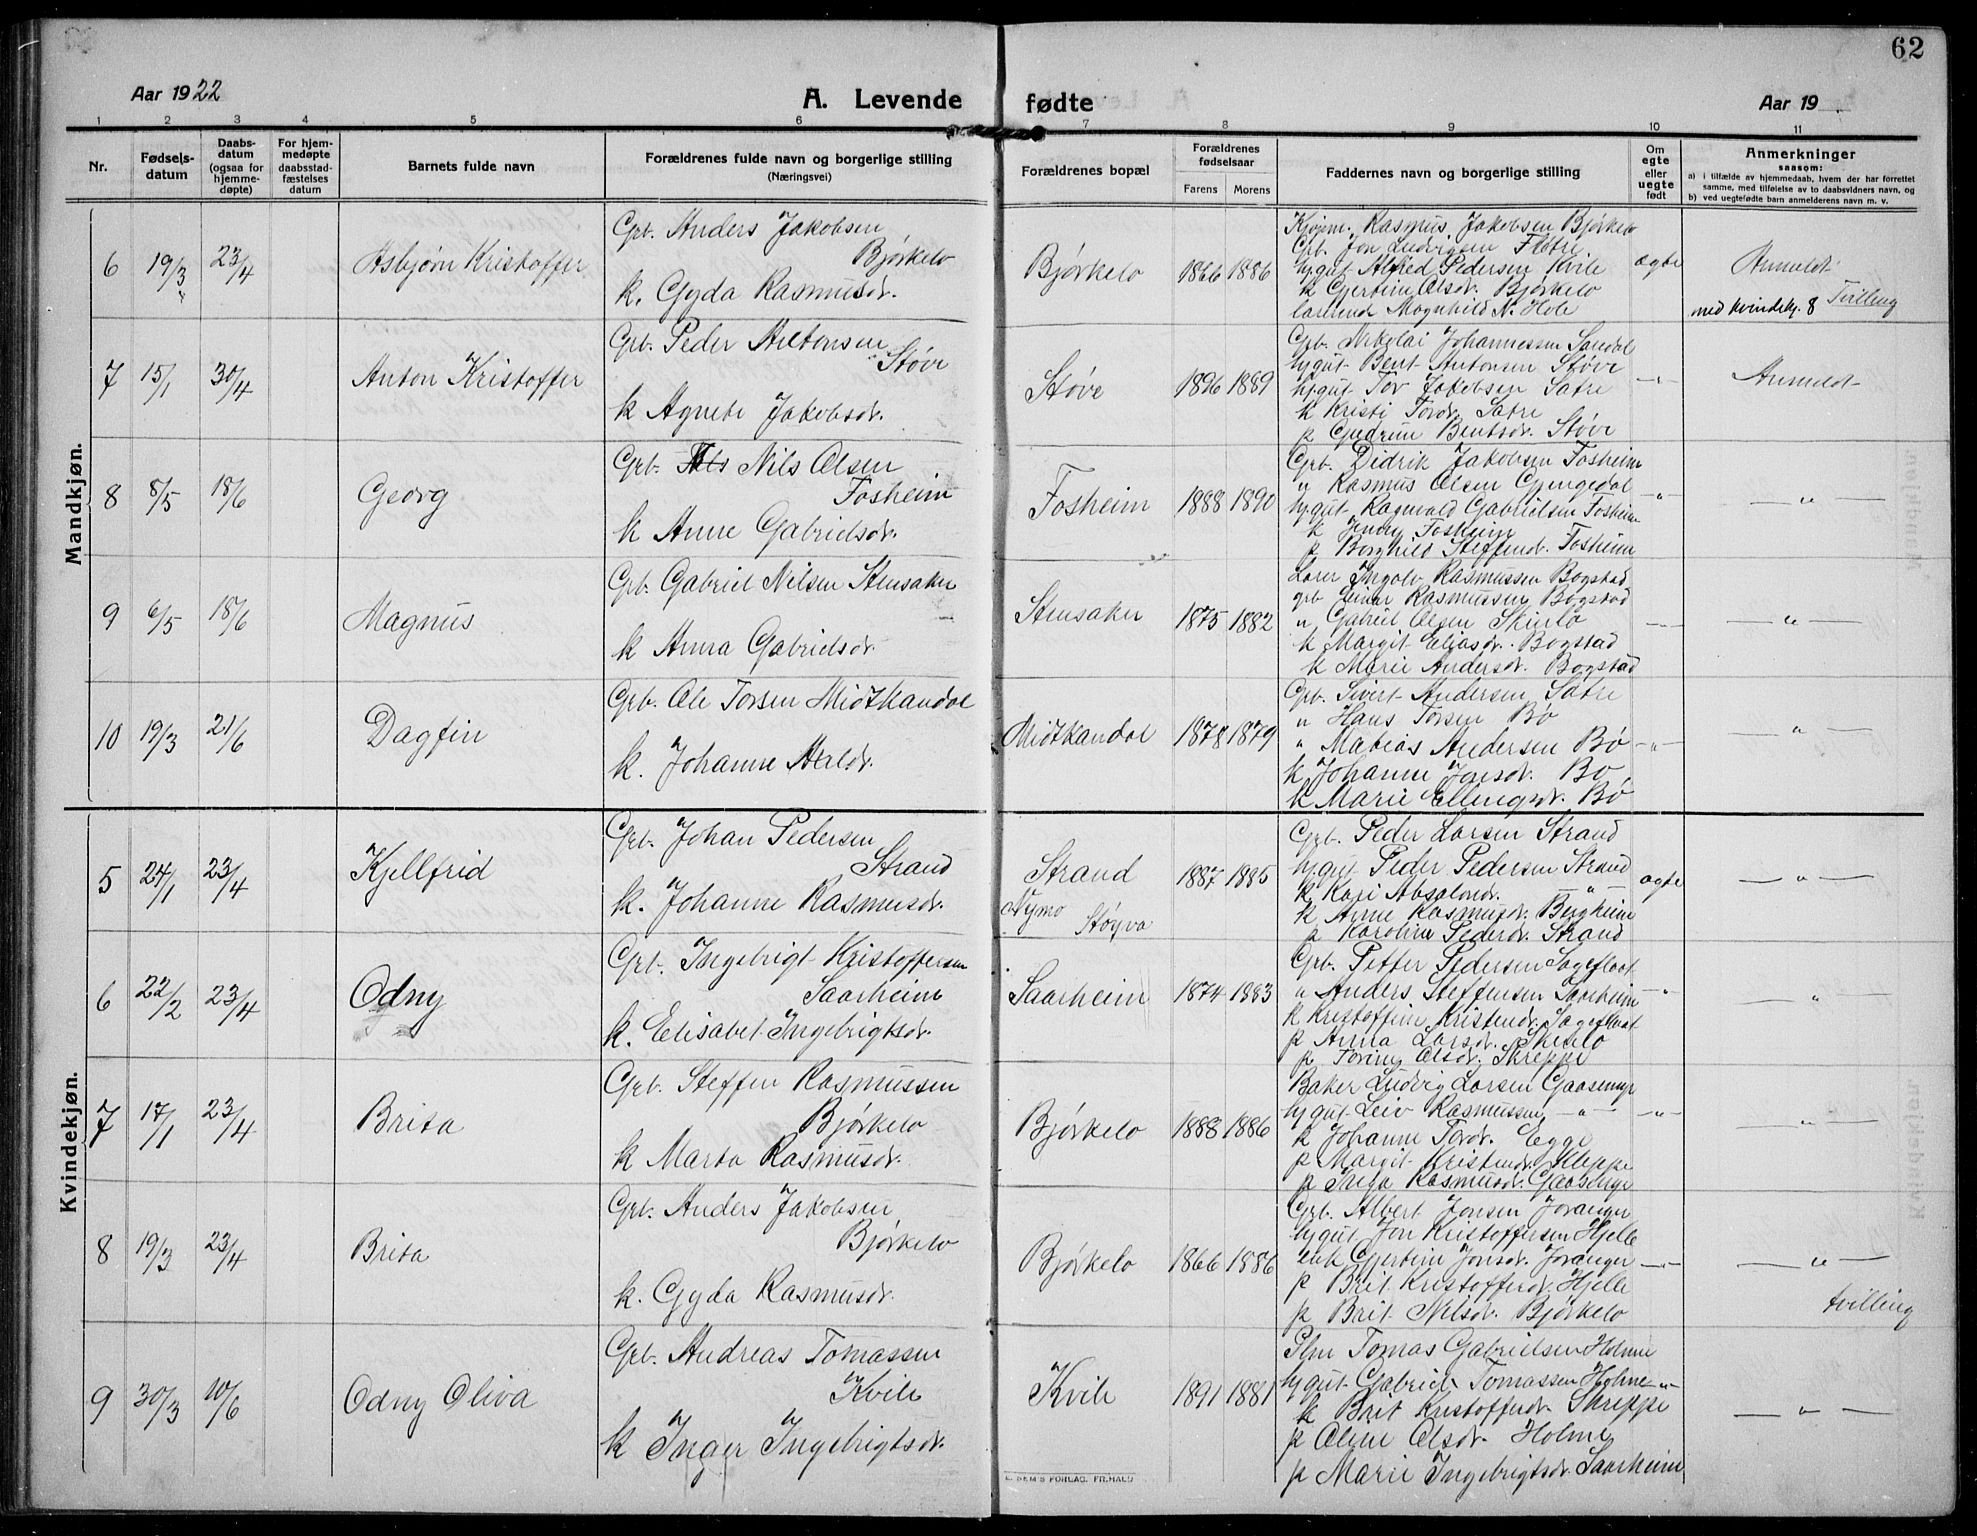 62
Aar 1922
A. Levende fødte
Aar 19
1 2 3 4 5 6 7 8 9 10 11
Nr.
Fødsels-datum
Daabs-datum (ogsaa for hjemme-døpte)
For hjem-medøpte daabsstad-fæstelses datum
Barnets fulde navn
Forældrenes fulde navn og borgerlige stilling
(Næringsvei)
Forældrenes bopæl
Forældrenes fødselsaar
Farens Morens
Faddernes navn og borgerlige stilling
Om egte eller uegte født
Anmerkninger
saasom:
a) i tilfælde av hjemmedaab, hvem der har forrettet samme, med tilføielse av to daabsvidners navn, og
b) ved uegtefødte barn anmelderens navn m. v.
Mandkjøn.
6 19/3 23/4 Asbjørn Kristoffer
Grb. Anders Jakobsen
Bjørkelo
k. Gyda Rasmusdr.
Bjørkelo 1866 1886
Kjøpm. Rasmus Jakobsen Bjørkelo
Grb. Jon Ludvigsen Fløtre
Ugut Alfred Pedersen Kvile
k Gjertine Olsdr. Bjørkelo
Lærerinde Magnhild N. Hole
ægte
Anmeldt
Tvilling
med kvindekj. 8
7 15/1 30/4 Anton Kristoffer
Grb. Peder Antonsen
Støve
k Agnete Jakobsdr.
Støve 1896 1889
Grb. Nikolai Johannessen Sandal
Ugut Bent Antonsen Støve
Ugut Tor Jakobsen Sætre
k Kristi Tordr. Sætre
p Gudrun Bentsdr. Støve
— " —
Anmeldt
8 8/5 18/6 Georg
Grb. Nils Olsen
Fosheim
k Anne Gabrielsdr.
Fosheim 1888 1890
Grb. Didrik Jakobsen Fosheim
" Rasmus Olsen Gjengedal
Ugut Ragnvald Gabrielsen Fosheim
k Jenny Fosheim
p Borghild Steffensdr. Fosheim
— " —
— " —
9 6/5 18/6 Magnus
Grb. Gabriel Nilsen Stensaker
k Anna Gabrielsdr.
Stensaker 1875 1882
Lærer Ingolv Rasmussen Bogstad
grb Einar Rasmussen Bogstad
" Gabriel Olsen Skinlo
k Margit Eliasdr. Bogstad
k Marie Andersdr. Bogstad
— " —
— " —
10 19/3 21/6 Dagfin
Grb. Ole Torsen Midtkandal
k. Johanne
Midtkandal 1878 1879
Grb. Sivert Andersen Sætre
" Hans Torsen Bø
" Matias Andersen Bø
k Johanne Jonsdr. Bø
k Marie Ellingsdr. Bø
— " —
— " —
Kvindekjøn.
5 24/1 23/4 Kjellfrid
Grb. Johan Pedersen
Strand
k. Johanne Rasmusdr.
Strand 1887 1885
Nymo Støyva
Grb. Peder Larsen Strand
Ugut Peder Pedersen Strand
k Kari Absalonsdr. — " —
k Anne Rasmusdr. Bergheim
p Karoline Pedersdr. Strand
ægte
— " —
6 22/2 23/4 Odny
Grb. Ingebrigt Kristoffersen
Saarheim
k. Elisabet Ingebrigtsdr.
Saarheim 1874 1883
Grb. Petter Pedersen Sageflaat
" Anders Steffensen Saarheim
k Kristoffine Kristensdr. Sageflaat
p Anna Larsdr.
p Toriny Olsdr. Skreppe
— " —
— " —
7 17/1 23/4 Brita
Grb. Steffen Rasmussen
Bjørkelo
k Marta Rasmusdr.
Bjørkelo 1888 1886
Baker Ludvig Larsen Gaasemyr
Ugut Leiv Rasmussen — " —
k Johanne Tordr. Egge
p Margit Kristensdr. Kleppe
p Inga Rasmusdr. Gaasemyr
— " —
— " —
8 19/3 23/4 Brita
Grb. Anders Jakobsen
Bjørkelo
k. Gyda Rasmusdr.
Bjørkelo 1866 1886
Grb. Albert Jonsen Joranger
Ugut Jon Kristoffersen Hjelle
enk Gjertine Jonsdr. Joranger
p Brit Kristoffersdr. Hjelle
p Brit Nilsdr. Bjørkelo
— " —
— " —
tvilling
9 30/3 10/6 Odny Oliva
Grb. Andreas Tomassen
Kvile
k Inger Ingebrigtsdr.
Kvile 1891 1881
Plm Tomas Gabrielsen Holme
Ugut Gabriel Tomassen Holme
k Brit Kristoffersdr. Skreppe
p Oline Olsdr. Holme
p Marie Ingebrigtsdr. Saarheim
— " —
— " —
E. SEM'S FORLAG, FR.HALD